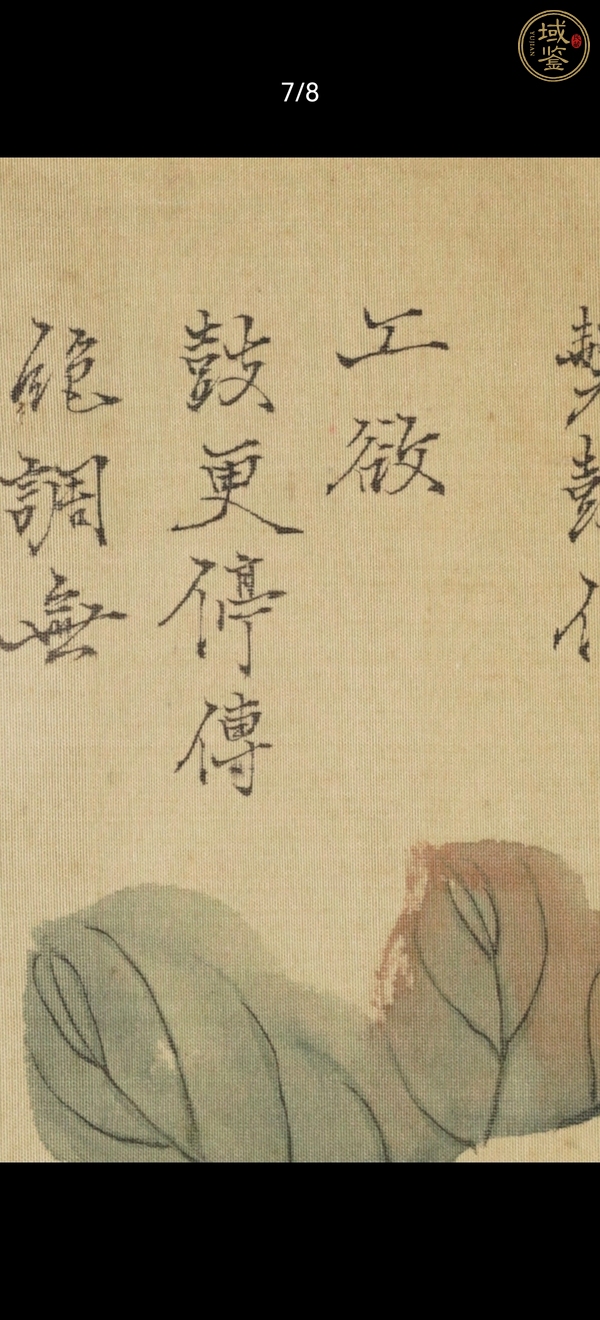 域鉴
YUJIAN
7/8
工欲
鼓更停傳
調無